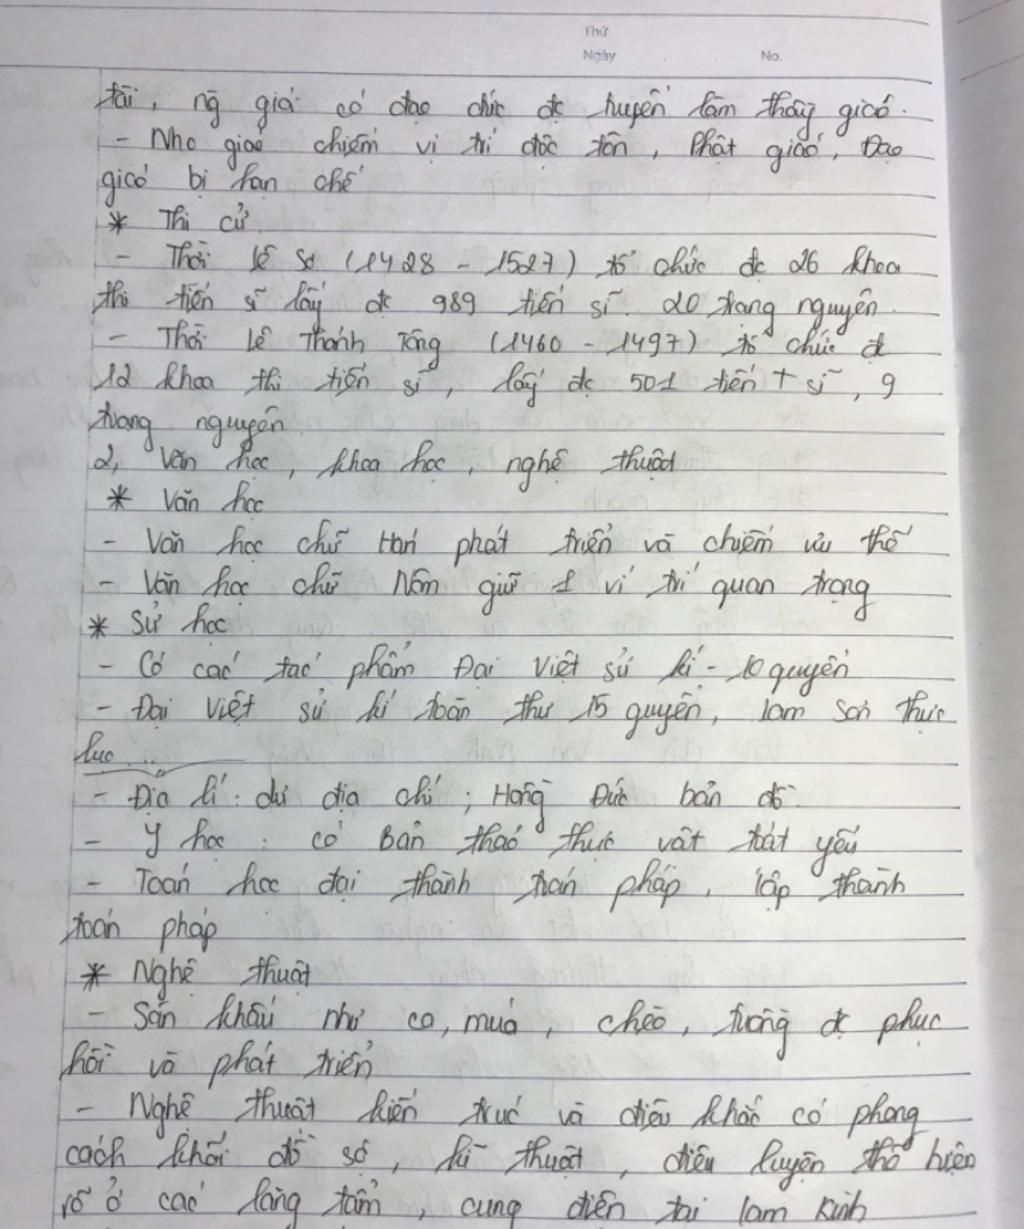 Thứ
Ngày No.
tài, ng giá có đạo đức đc tuyển làm thầy giáo.
- Nho giáo chiếm vị trí độc tôn, Phật giáo, Đạo
giáo bị hạn chế
* Thi cử
- Thời lê sơ (1428 - 1527) tổ chức đc 26 khoa
thi tiến sĩ lấy đc 989 tiến sĩ. 20 trạng nguyên.
- Thời lê Thánh Tông (1460 - 1497) tổ chức đc
12 khoa thi tiến sĩ, lấy đc 501 tiến sĩ, 9
trạng nguyên.
2, Văn học, khoa học, nghệ thuật
* Văn học
- Văn học chữ Hán phát triển và chiếm ưu thế
- Văn học chữ Nôm giữ 1 ví trí quan trọng
* Sử học
- Có các tác phẩm Đại Việt sử kí - 10 quyển
- Đại Việt sử kí toàn thư 15 quyển, lam sơn thực
lục...
- Địa lí: dư địa chí; Hồng Đức bản đồ.
- Y học: có Bản thảo thực vật toát yếu
- Toán học đại thành toán pháp, lập thành
toán pháp
* Nghệ thuật
- Sân khấu như ca, múa, chèo, tuồng đc phục
hồi và phát triển
- Nghệ thuật kiến trúc và điêu khắc có phong
cách khối đồ sộ, kĩ thuật, điêu luyện thể hiện
rõ ở các lăng tẩm, cung điện tại lam kinh